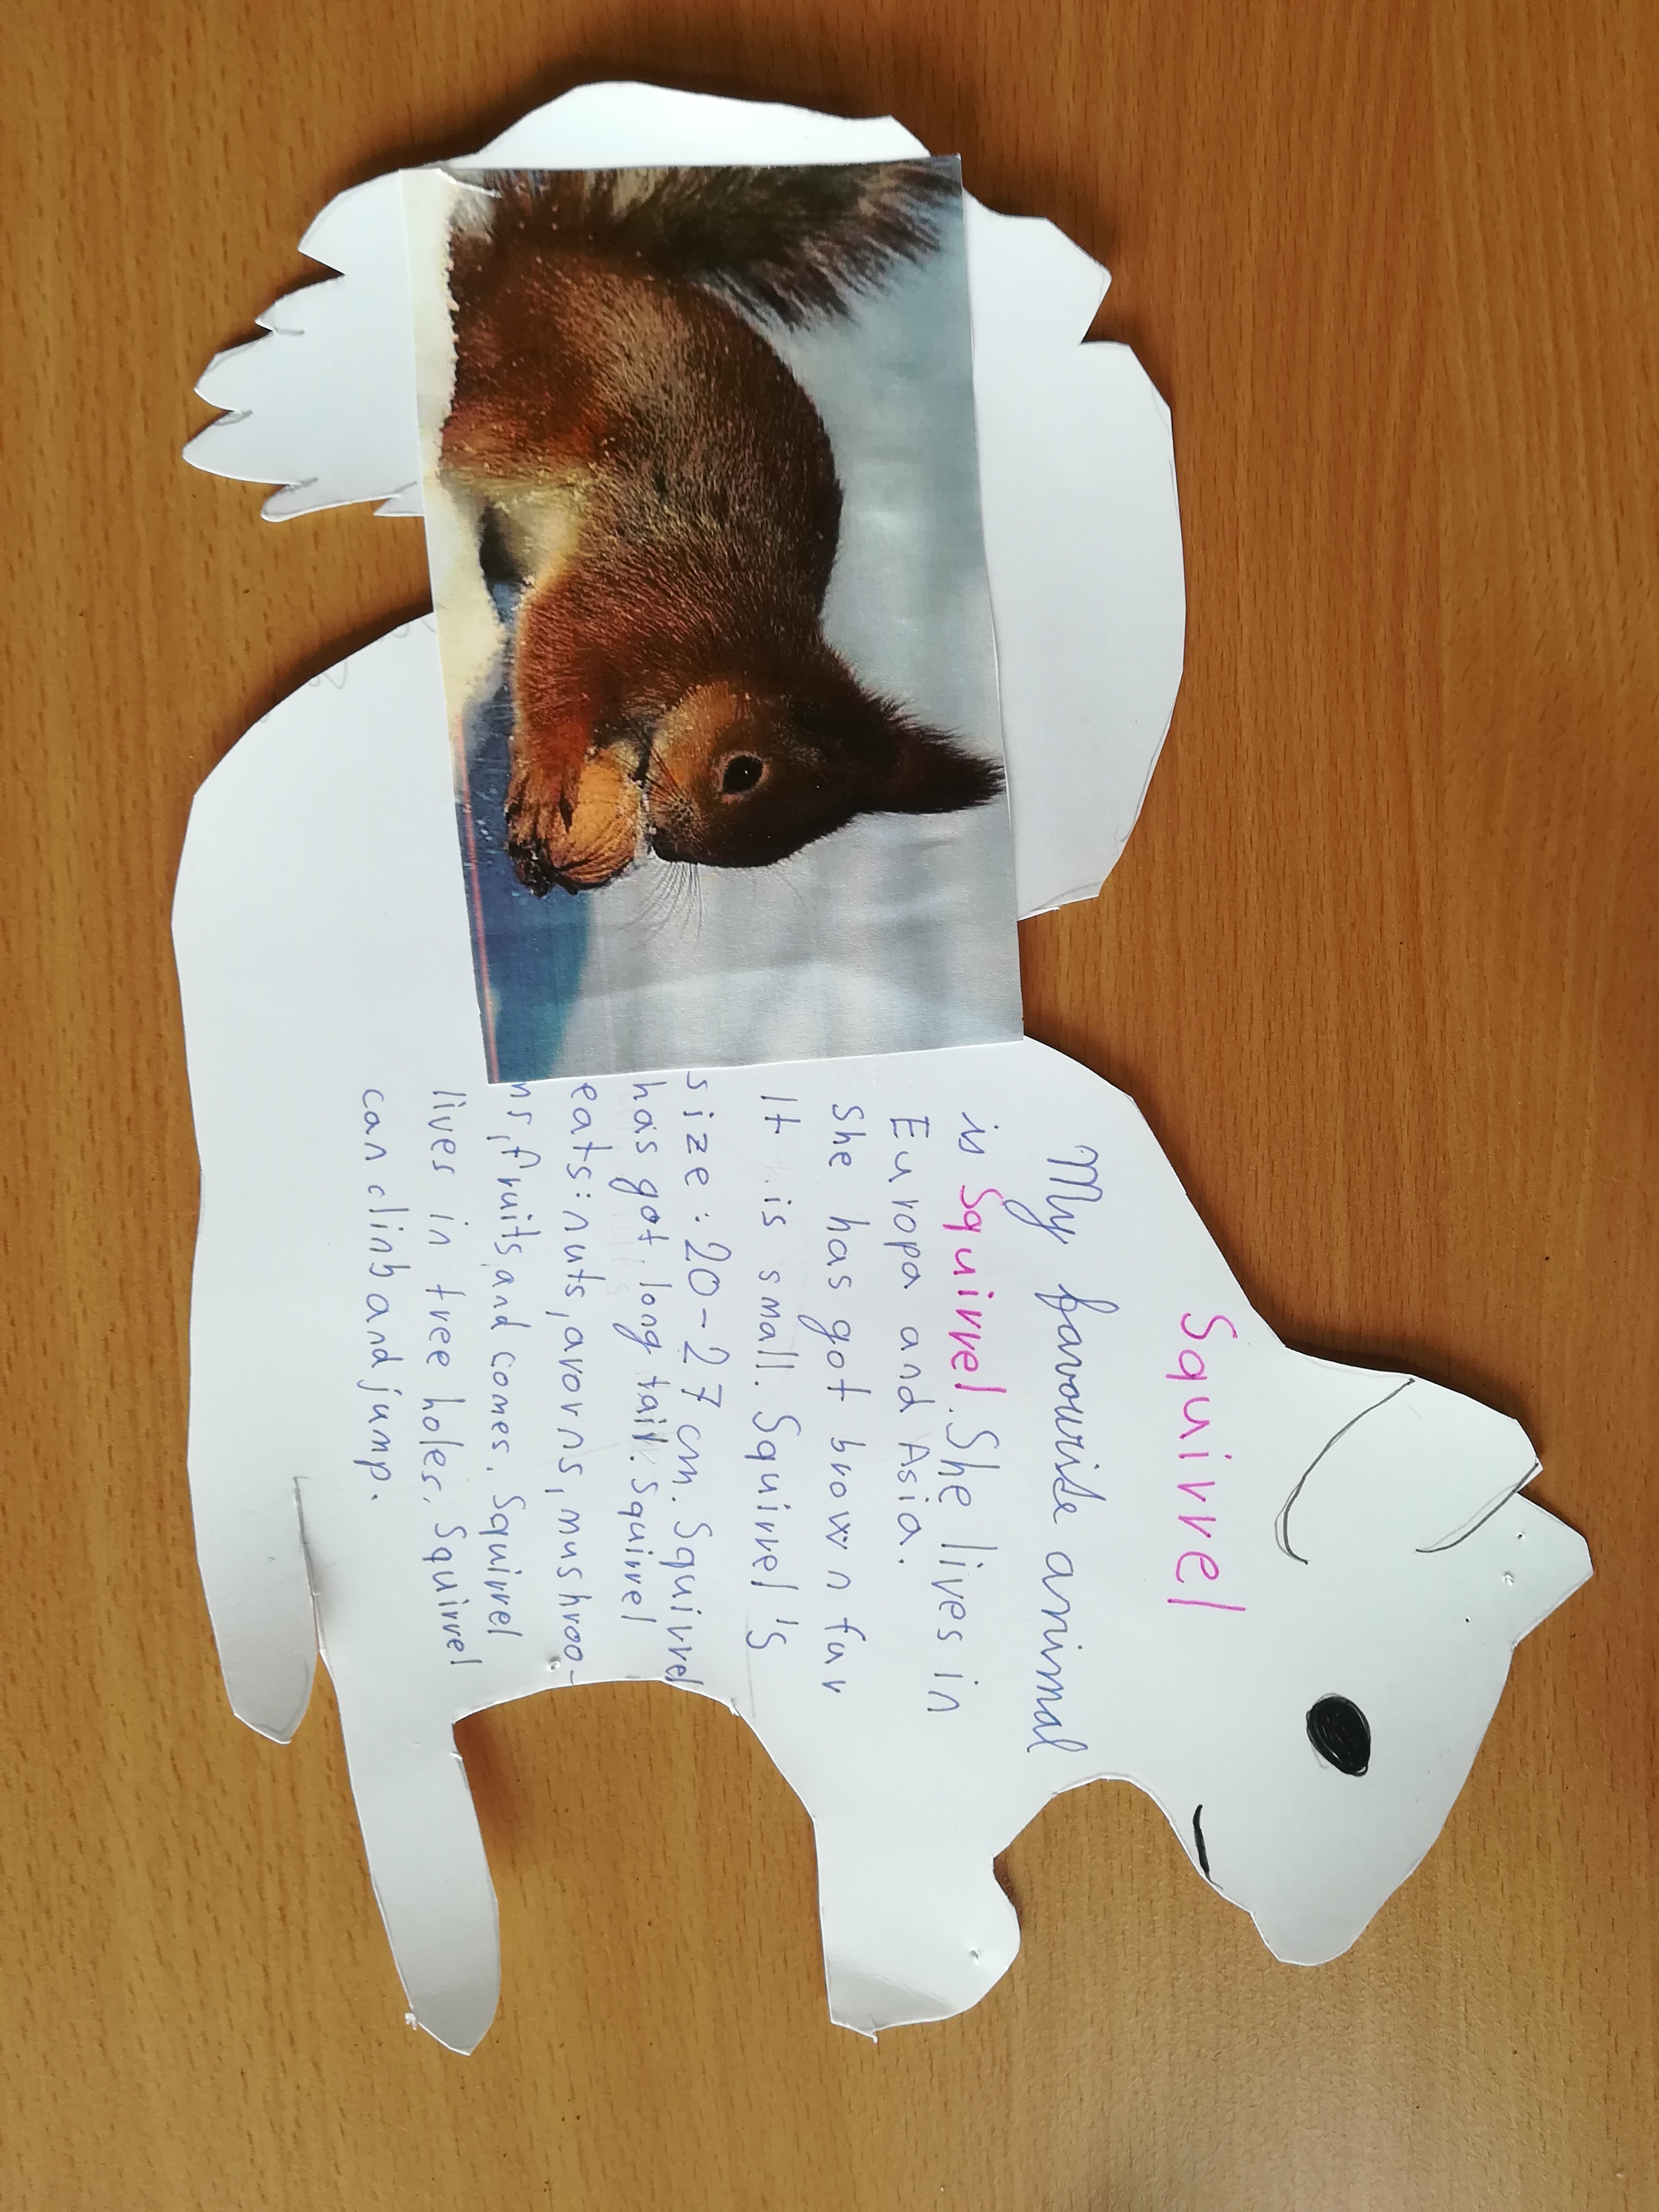 Squirrel
My favourite animal
is Squirrel. She lives in
Europa and Asia.
She has got brown fur
It is small. Squirrel is
size: 20-27 cm. Squirrel
has got long tail. Squirrel
eats: nuts, avorns, mushroo-
ms, fruits and comes. Squirrel
lives in tree holes. Squirrel
can climb and jump.